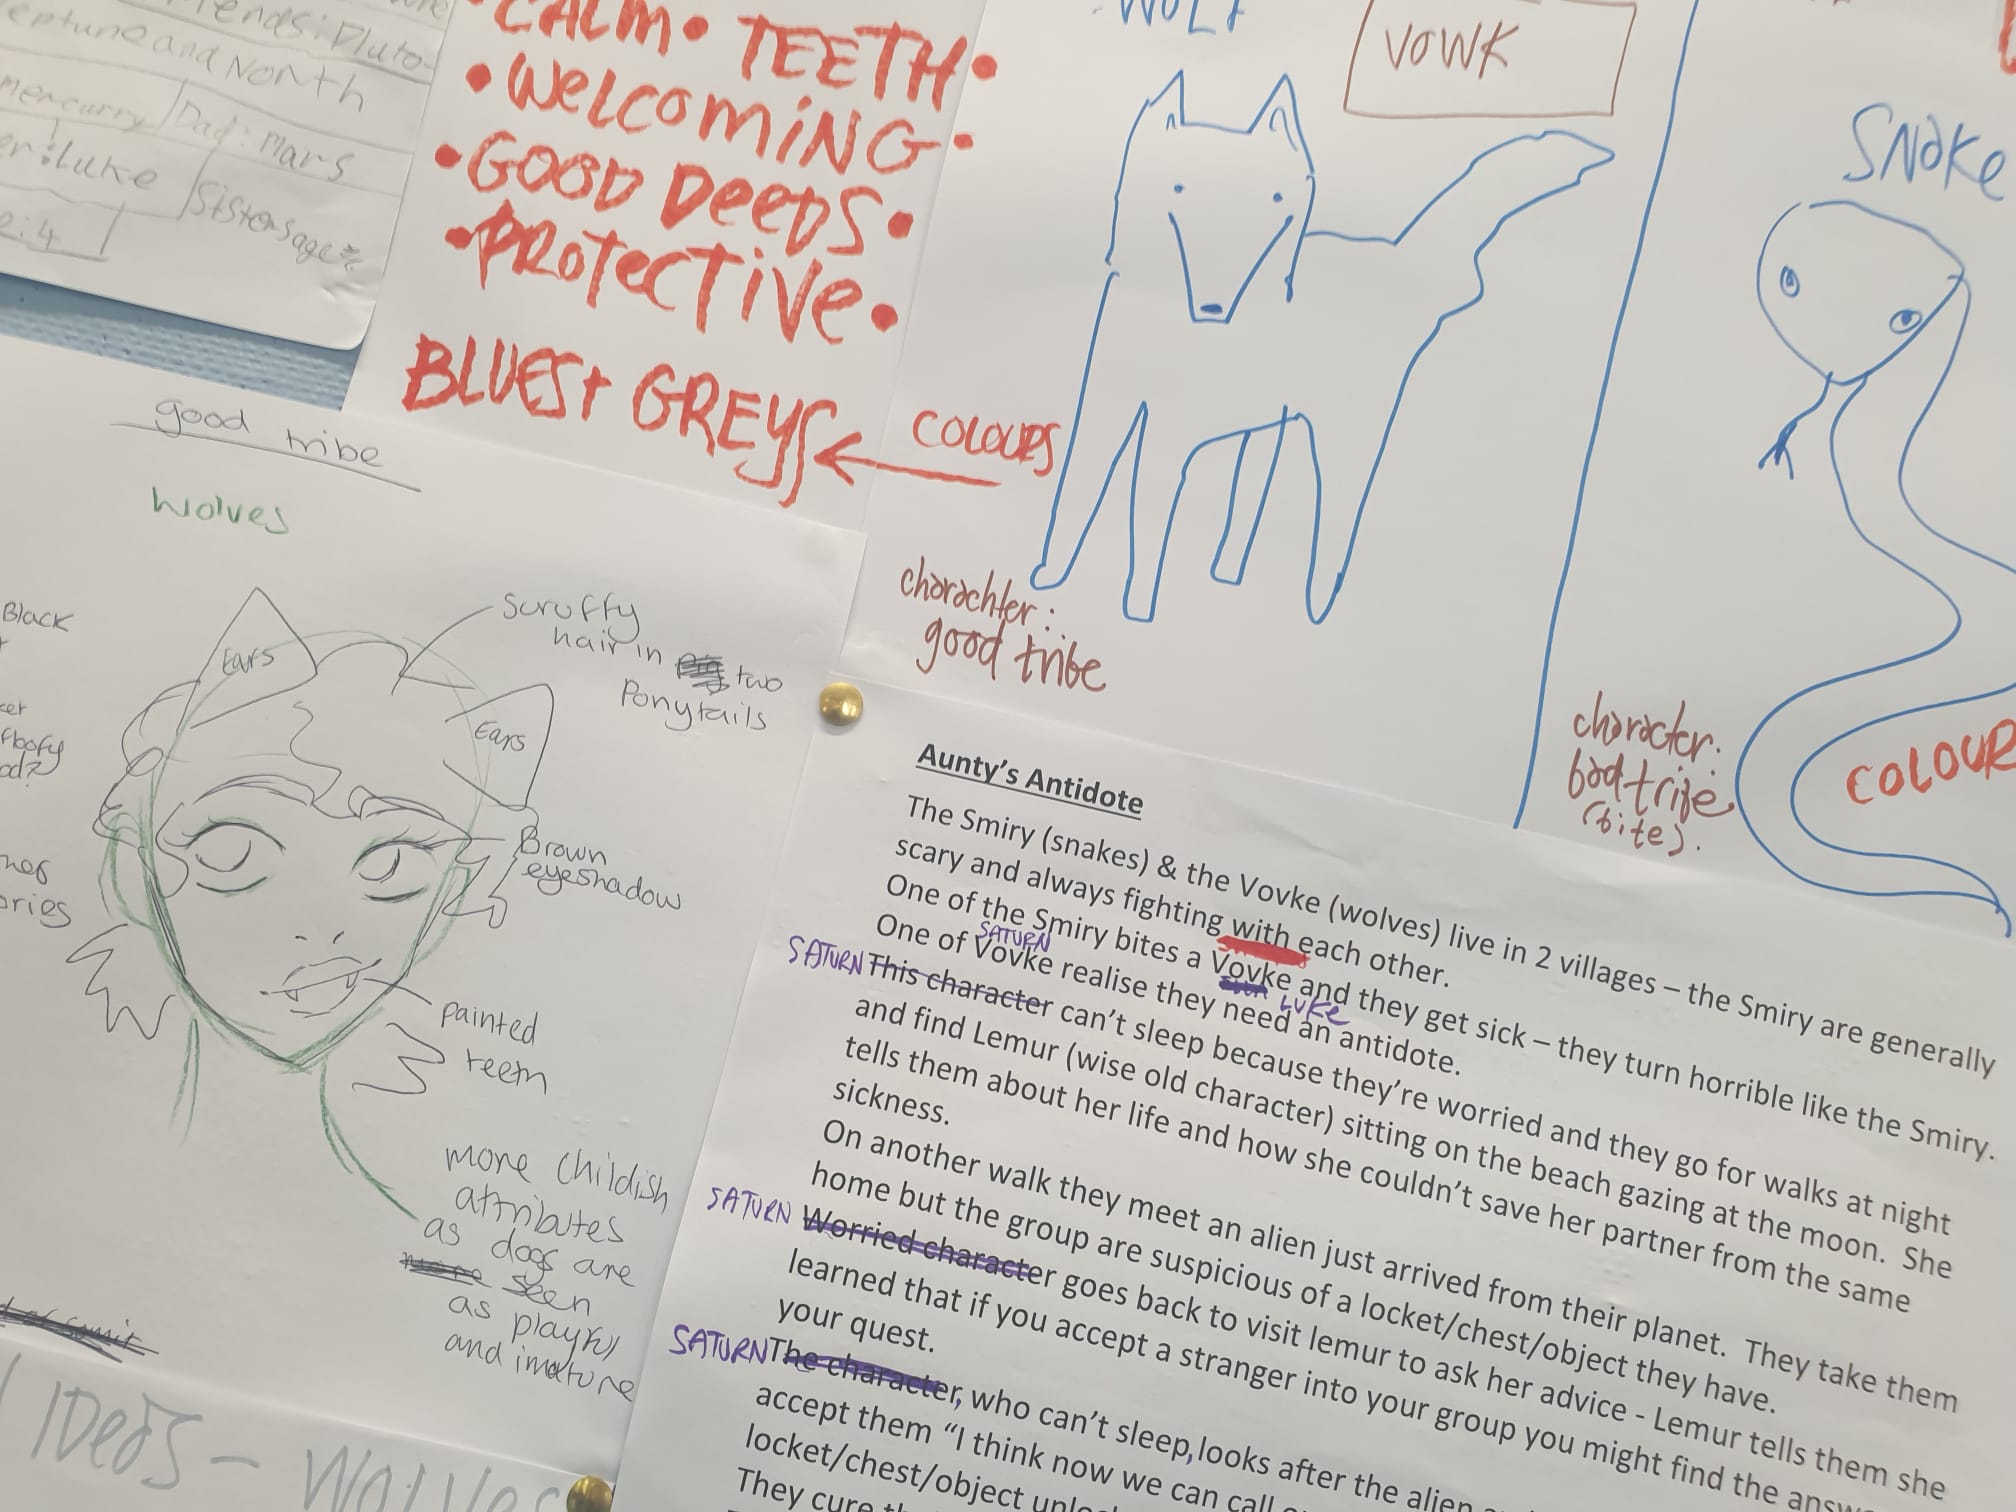 Pluto
Neptune and North
mercurry
Dad: Mars
Luke
Sisters age:
4
CALM • TEETH •
• WelcomiNG •
• GOOD DeeDS •
• PROTecTiVe •
BLUES + GREYS
COLOURS
WOLF
VOWK
charachter:
good tribe
SNake
character:
bad trije
(bite).
COLOUR
good tribe
wolves
Black
Ears
Ears
Scruffy
hair in two
Ponytails
floofy
Brown
eyeshadow
painted
teeth
more childish
attributes
as dogs are
seen
as playful
and imature
IDeas - Wolves
Aunty's Antidote
The Smiry (snakes) & the Vovke (wolves) live in 2 villages – the Smiry are generally
scary and always fighting with each other.
One of the Smiry bites a Vovke and they get sick – they turn horrible like the Smiry.
SATURN LUKE
One of Vovke realise they need an antidote.
SATURN This character can't sleep because they're worried and they go for walks at night
and find Lemur (wise old character) sitting on the beach gazing at the moon. She
tells them about her life and how she couldn't save her partner from the same
sickness.
On another walk they meet an alien just arrived from their planet. They take them
home but the group are suspicious of a locket/chest/object they have.
SATURN Worried character goes back to visit lemur to ask her advice - Lemur tells them she
learned that if you accept a stranger into your group you might find the
your quest.
SATURN The character, who can't sleep, looks after the alien
accept them "I think now we can call
locket/chest/object
They cure